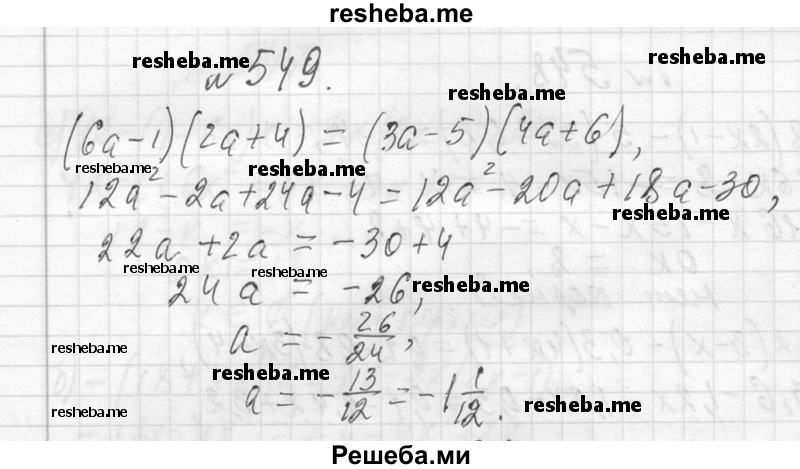 resheba.me
resheba.me resheba.me
№ 549.
resheba.me
(6a-1)(2a+4) = (3a-5)(4a+6),
resheba.me resheba.me
12a² - 2a + 24a - 4 = 12a² - 20a + 18a - 30,
resheba.me
22a + 2a = -30 + 4
resheba.me resheba.me
24a = -26,
resheba.me
a = -26/24,
resheba.me
resheba.me
a = -13/12 = -1 1/12.
resheba.me resheba.me
Решеба.ми